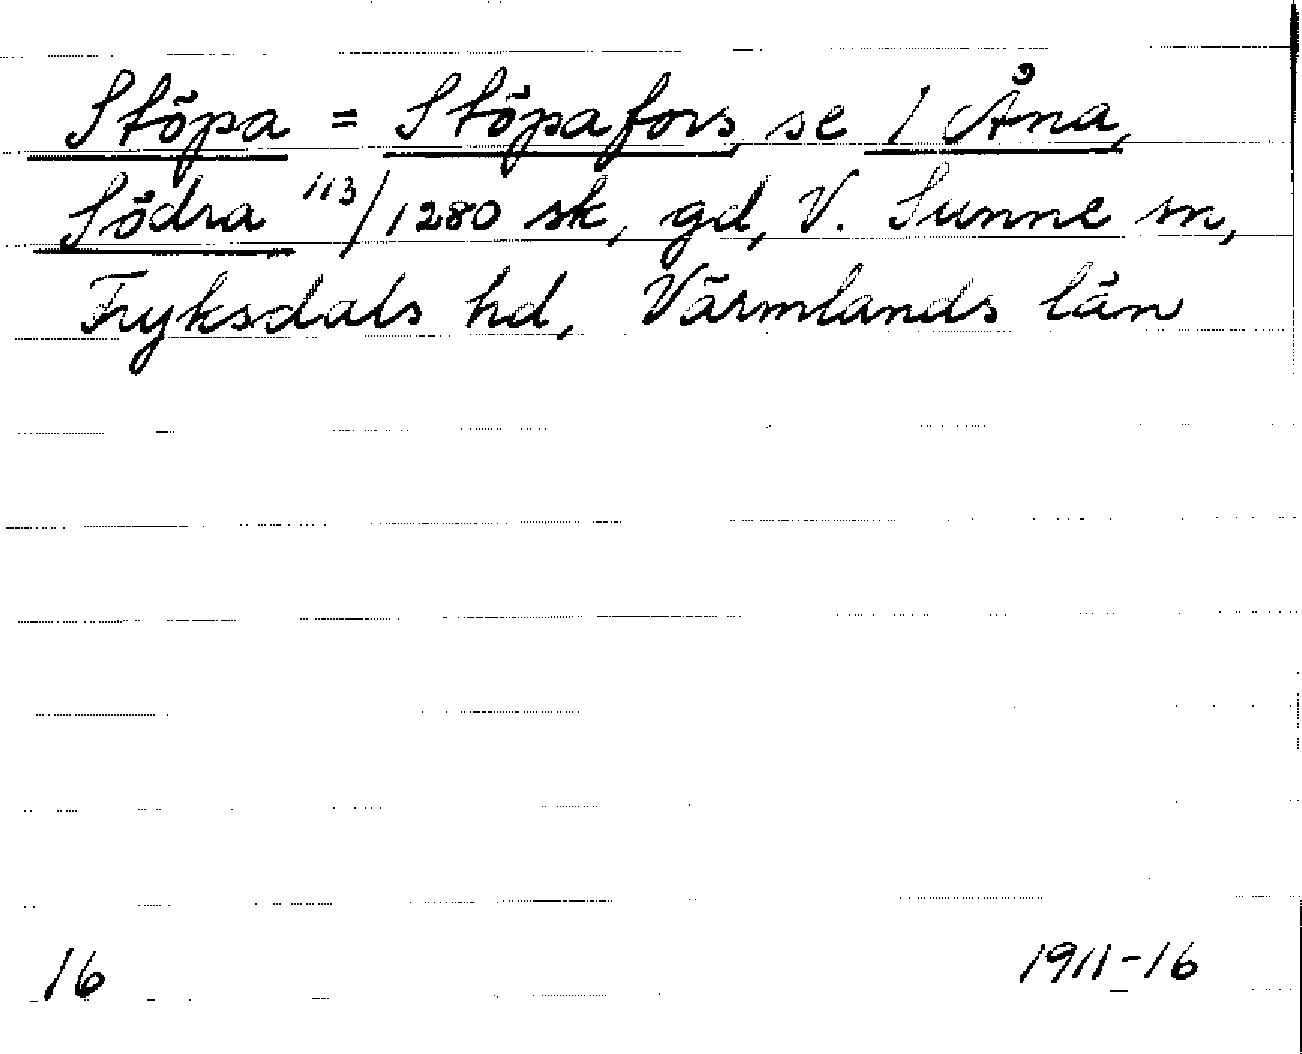 Stöpa = Stöpafors, se 1 Åna,
Södra 113/1280 sk, gd, V. Sunne sn,
Fryksdals hd, Värmlands län
16
1911-16